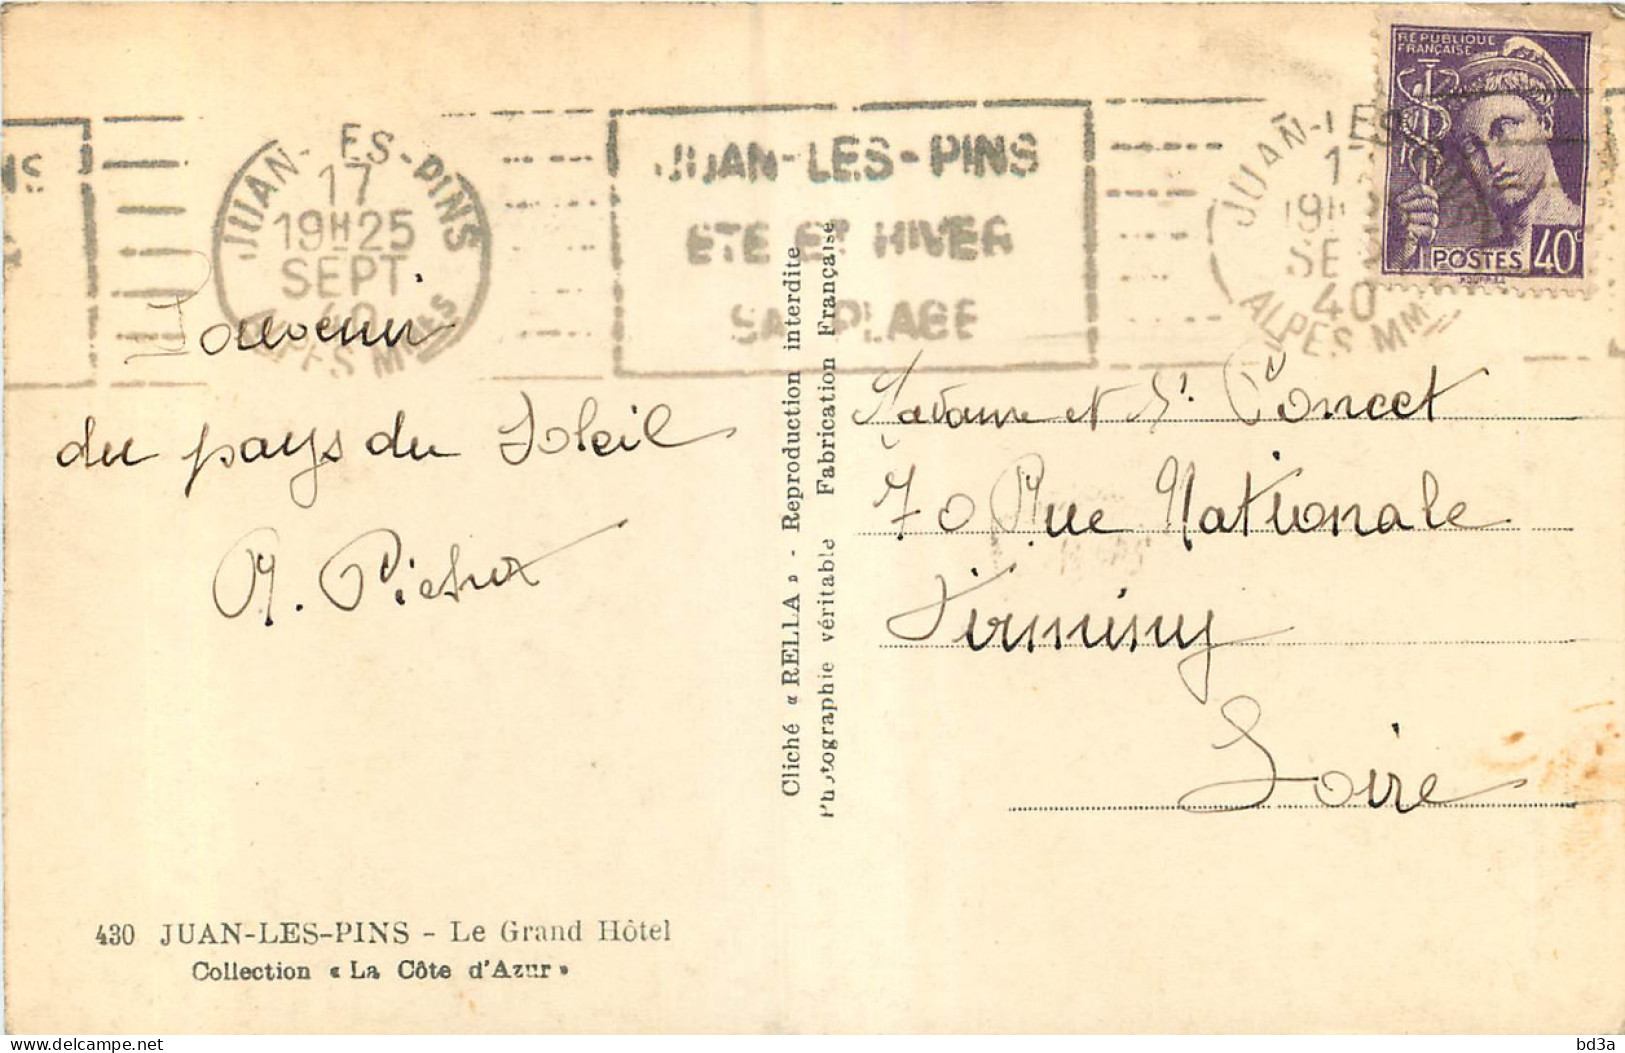 RÉPUBLIQUE
FRANÇAISE
POSTES 40c
JUAN-LES-PINS
17
19H25
SEPT.
40
ALPES MMES
JUAN-LES-PINS
ETE ET HIVER
SA PLAGE
JUAN-LES
1
19H
SE
40
ALPES MM
Souvenir
du pays du Soleil
Cliché « RELLA » - Reproduction interdite
Photographie véritable Fabrication Française
Madame et Mr. Poncet
70 Rue Nationale
Firminy
Loire
430 JUAN-LES-PINS - Le Grand Hôtel
Collection « La Côte d'Azur »
delcampe.net
bd3a